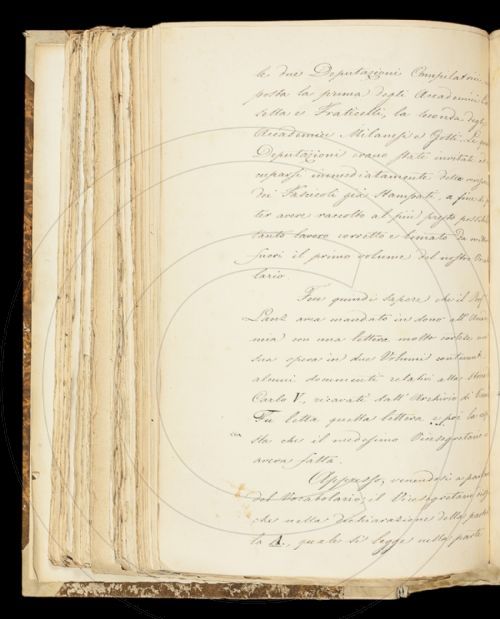 le due Deputazioni Compilatrici
posta la prima degli Accademici
sella e Fraticelli, la seconda degli
Accademici Milanesi e Gotti. Le
Deputazioni erano state invitate
immediatamente della
dei Fascicoli già stampati, a fine
ter avere raccolto al più presto
tanto lavoro corretto e limato da
fuori il primo volume del nostro
lario.
Feci quindi sapere che il
Lanz avea mandato in dono all'
mia con una lettera molto cortese
sua opera in due Volumi
alcuni documenti relativi alla
Carlo V, ricavati dall'Archivio di
Fu letta quella lettera e poi la
sta che il medesimo Vicesegretario
aveva fatta.
Appresso, venendosi a parlare
del Vocabolario, il Vicesegretario
che nella dichiarazione della
la A, quale si legge nella parte